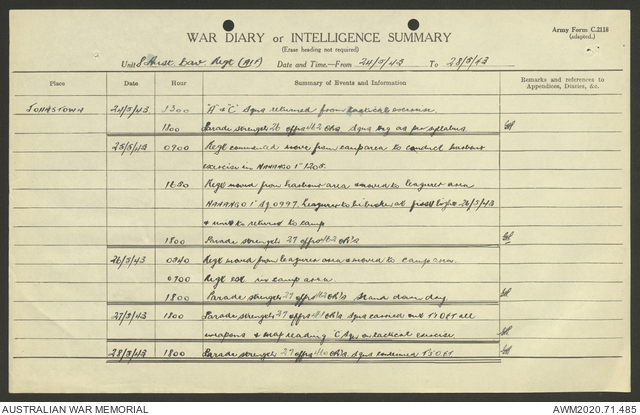 Army Form C.2118
(adapted.)
WAR DIARY or INTELLIGENCE SUMMARY
(Erase heading not required)
Unit 8 Aust Cav Regt (AIF) Date and Time—From 24/5/43 To 28/5/43
Place Date Hour Summary of Events and Information Remarks and references to Appendices, Diaries, &c.
JOHNSTOWN 24/5/43 1300 "A" & "C" Sqns returned from tactical exercise
1800 Parade strength 26 offrs 462 ORs Sqns trg as per syllabus
25/5/43 0900 Regt commenced move from camp area to conduct harbour
exercise in NANANGO 1" 1205.
1630 Regt moved from harbour area & moved to leaguer area
NANANGO 1" Sq 0997. Leaguer to be broken at first light 26/5/43
& unit to return to camp
1800 Parade strength 27 offrs 462 OR's
26/5/43 0340 Regt moved from leaguer area & moved to camp area.
0700 Regt in camp area
1800 Parade strength 27 offrs 462 OR's Stand down day
27/5/43 1800 Parade strength 27 offrs 461 OR's Sqns carried out TsOET all
weapons & map reading "C" Sqn on tactical exercise
28/5/43 1800 Parade strength 27 offrs 460 OR's. Sqns continued TsOET
AUSTRALIAN WAR MEMORIAL
AWM2020.71.485